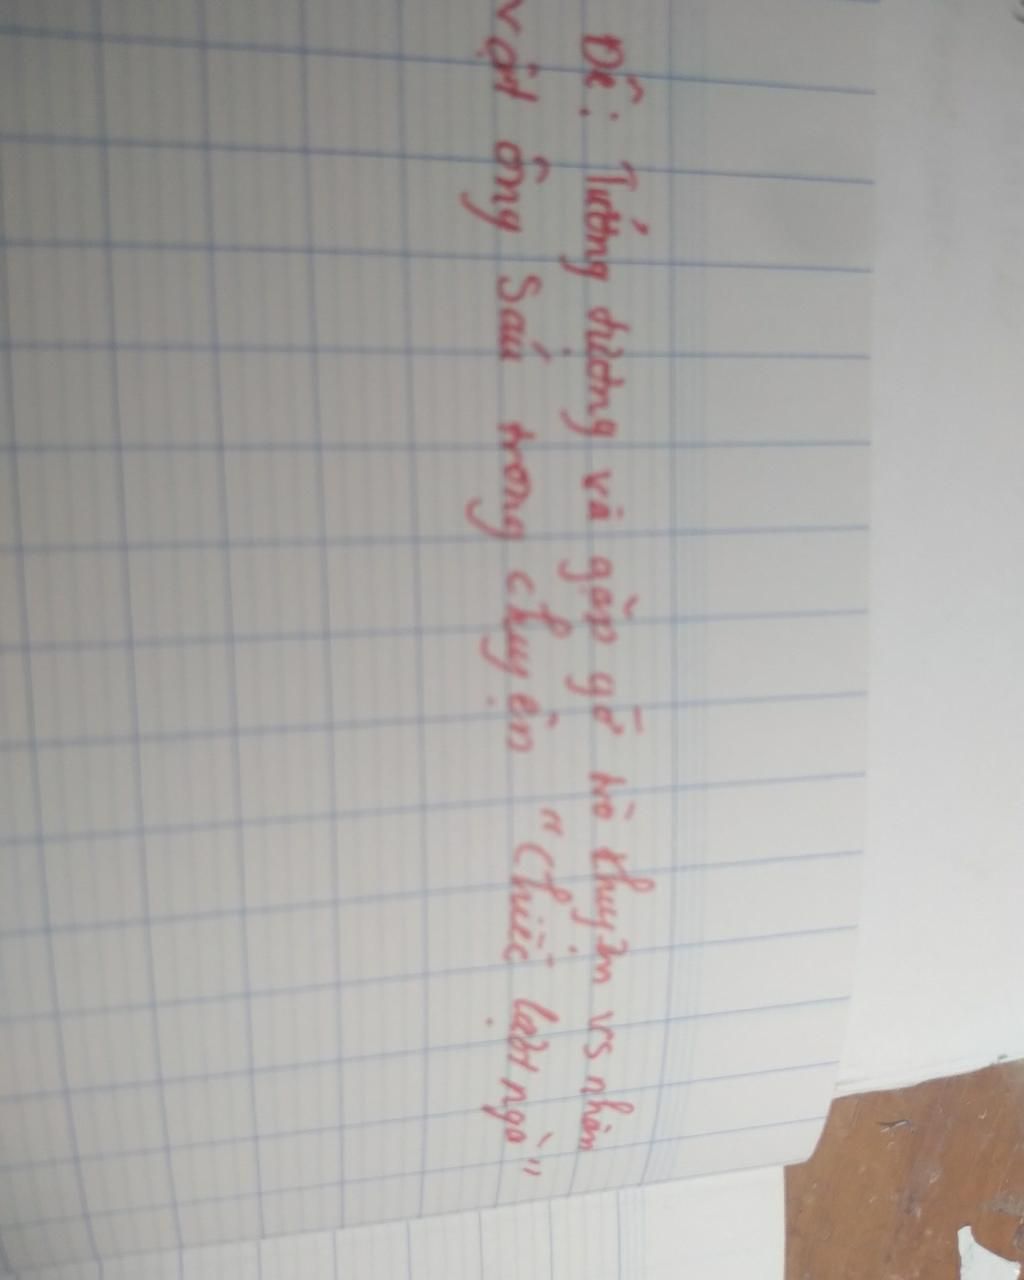 Đề: Tưởng tượng và gặp gỡ trò chuyện vs nhân
vật ông Sáu trong chuyện "Chiếc lược ngà"